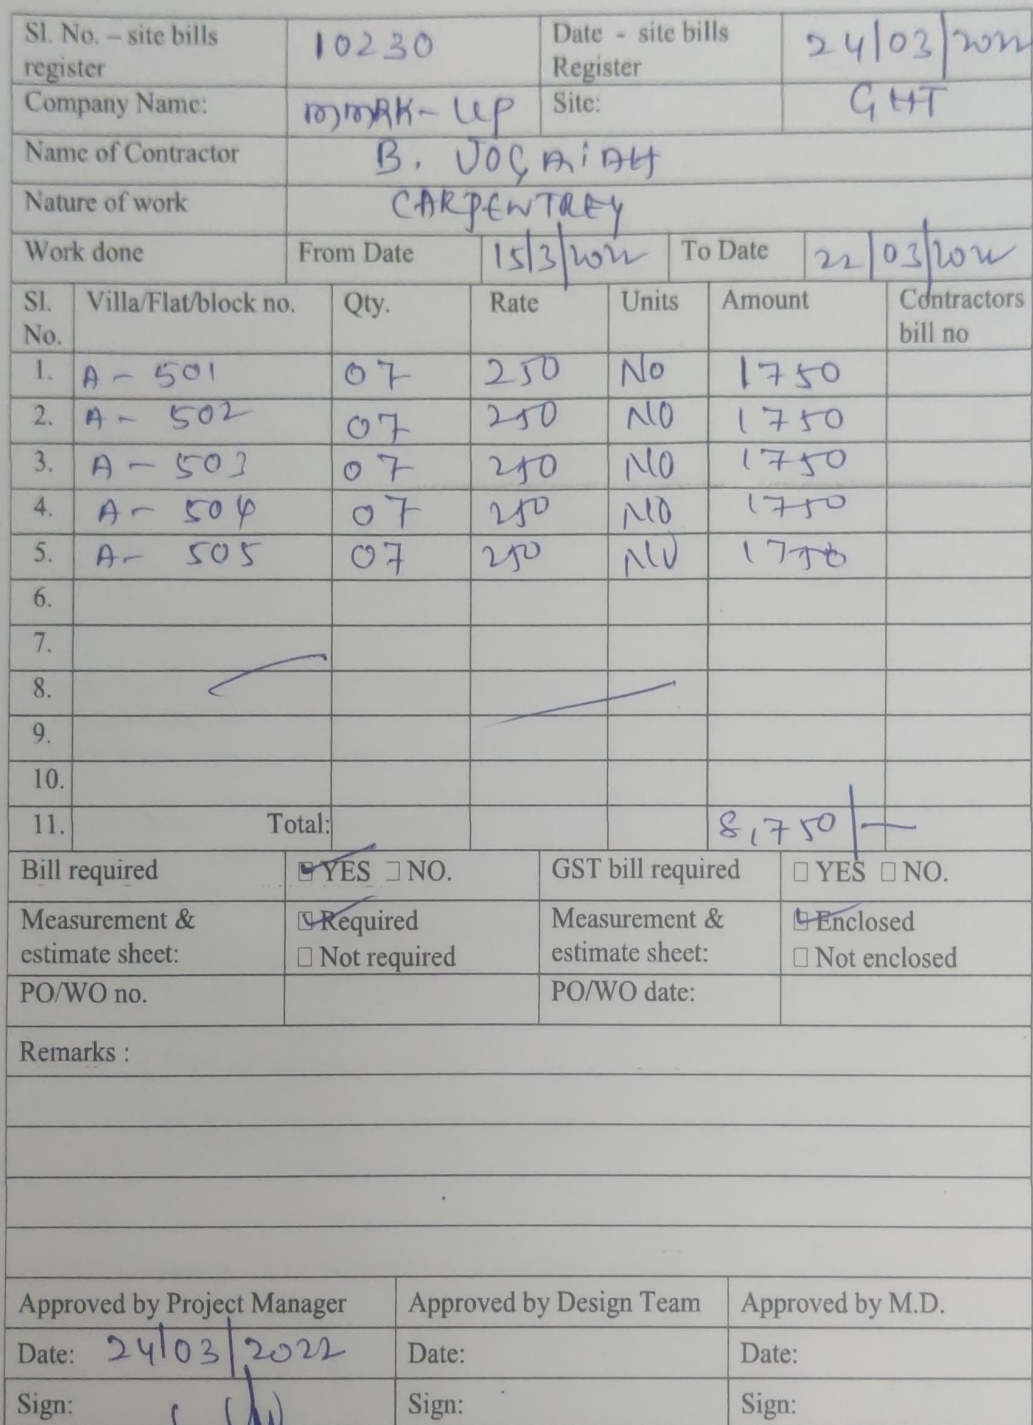 Sl. No. – site bills register 10230 Date - site bills Register 24/03/2022
Company Name: MMRK-UP Site: GHT
Name of Contractor B. JOGAiAH
Nature of work CARPENTREY
Work done From Date 15/3/2022 To Date 22/03/2022
Sl. No. Villa/Flat/block no. Qty. Rate Units Amount Contractors bill no
1. A - 501 07 250 NO 1750
2. A - 502 07 250 NO 1750
3. A - 503 07 250 NO 1750
4. A - 504 07 250 NO 1750
5. A - 505 07 250 NO 1750
6.
7.
8.
9.
10.
11. Total: 8,750/-
Bill required YES NO. GST bill required YES NO.
Measurement & estimate sheet: Required Not required Measurement & estimate sheet: Enclosed Not enclosed
PO/WO no. PO/WO date:
Remarks :
Approved by Project Manager Approved by Design Team Approved by M.D.
Date: 24/03/2022 Date: Date:
Sign: Sign: Sign: